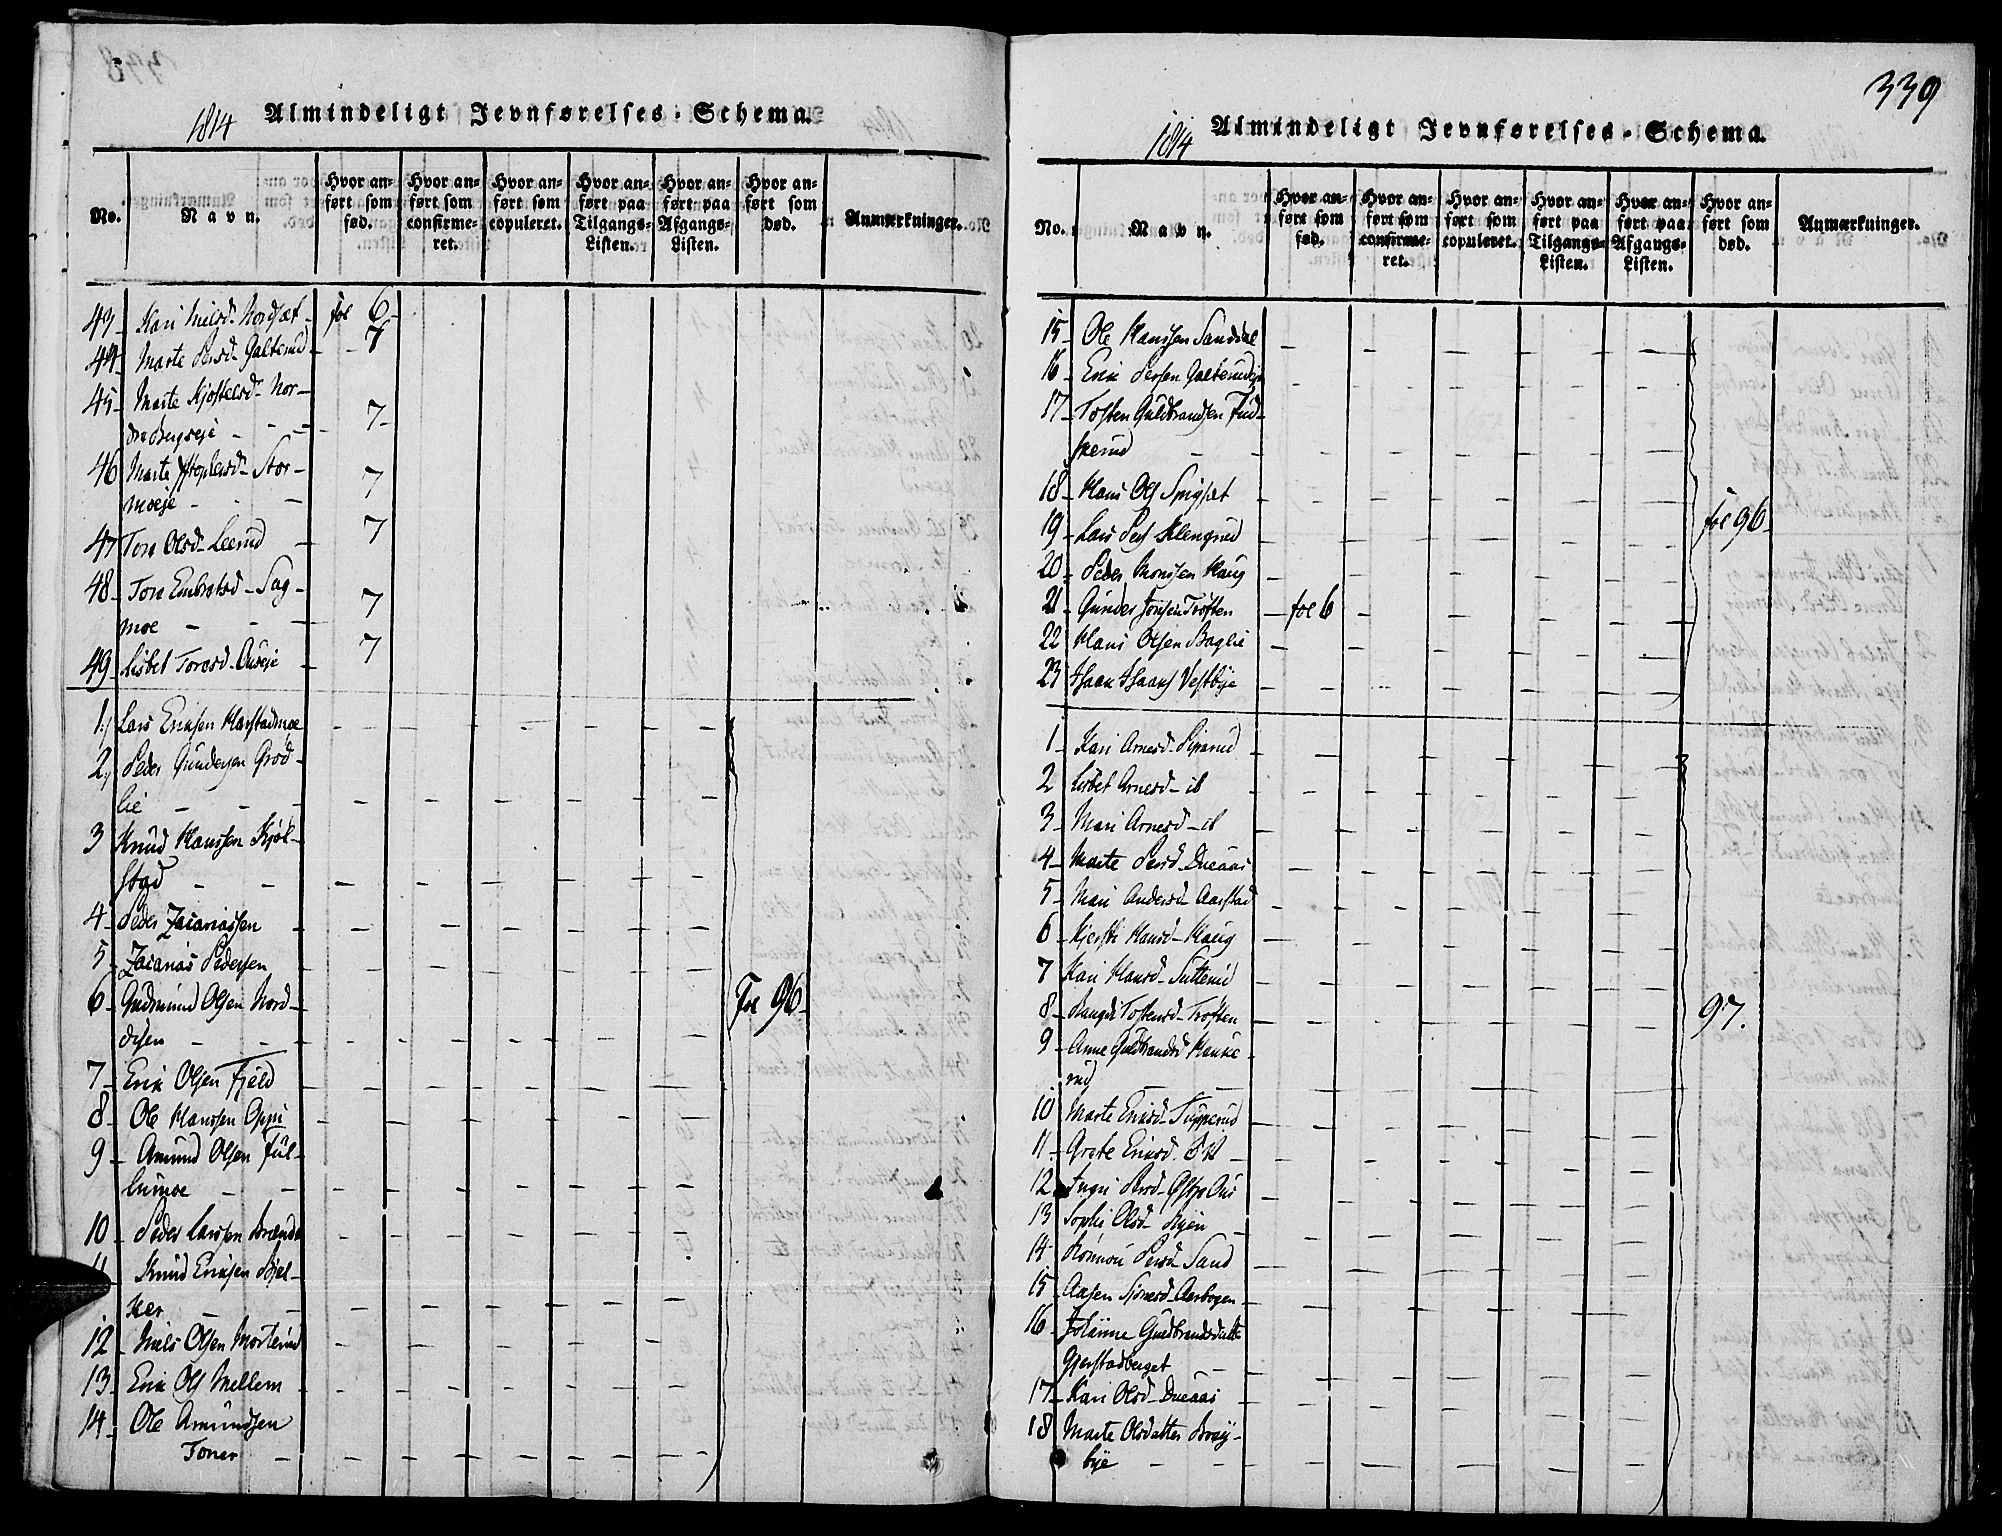 1814 Almindeligt Jevnførelses-Schema.
No. Navn. Hvor anført som fød. Hvor anført som confirmeret. Hvor anført som copuleret. Hvor anført paa Tilgangs-Listen. Hvor anført paa Afgangs-Listen. Hvor anført som død. Anmærkninger.
43 Kari Nielsd. Nordsæt fol 6
44 Marte Persd. Galterud 7
45 Marte Kjøstelsd. Nor-
dre Bergseje 7
46 Marte Stor-
moeje 7
47 Tore Olsd. Leerud 7
48 Tore Embretsd. Sag-
moe 7
49 Lisbet Toresd. Ouseje 7
1 Lars Eriksen Harstadmoe
2 Peder Gundersen Grød-
lie
3 Knud Hanssen Kjøl-
stad
4 Peder Zacariassen
5 Zacarias Pedersen
6 Gudmund Olsen Nord-
Fol 96
7 Erik Olsen Fjeld
8 Ole Hanssen Oppi
9 Amund Olsen Ful-
lumoe
10 Peder Larssen Brænde
11 Knud Eriksen Bjel-
ker
12 Niels Olsen Morterud
13 Erik Ols Mellem
14 Ole Amundsen
Toner
339
1814 Almindeligt Jevnførelses-Schema.
No. Navn. Hvor anført som fød. Hvor anført som confirmeret. Hvor anført som copuleret. Hvor anført paa Tilgangs-Listen. Hvor anført paa Afgangs-Listen. Hvor anført som død. Anmærkninger.
15 Ole Hanssen Sanddal
16 Erik Persen Galterudeje
17 Tosten Guldbrandsen Find-
skerud
18 Hans Ols Spigset
19 Lars Peds Klengerud fol 96
20 Peder Monssen Haug
21 Gunder Jonsen Trøften fol 6
22 Hans Olsen Baglie
23 Isaac Isaacs Vestbye
1 Kari Arnesd. Siperud
2 Lisbet Arnesd. ib
3 Mari Arnesd. ib
4 Marte Persd. Dueaas
5 Mari Andersd. Aarstad
6 Kjersti Hansd. Haug
7 Kari Hansd. Sutterud
8 Rangdi Tostensd. Trøften 97.
9 Anne Guldbrandsd. Hauke-
rud
10 Marte Eriksd. Tupperud
11 Grete Eriksd.
12 Ingri Persd. Østre Ous
13 Sophi Olsd. Byen
14 Rønnou Persd. Sand
15 Aasen Simensd. Aarbogen
16 Johanne Guldbrandsdatter
Gjerstadberget
17 Kari Olsd. Dueaas
18 Marte Olsdatter Brøy-
bye